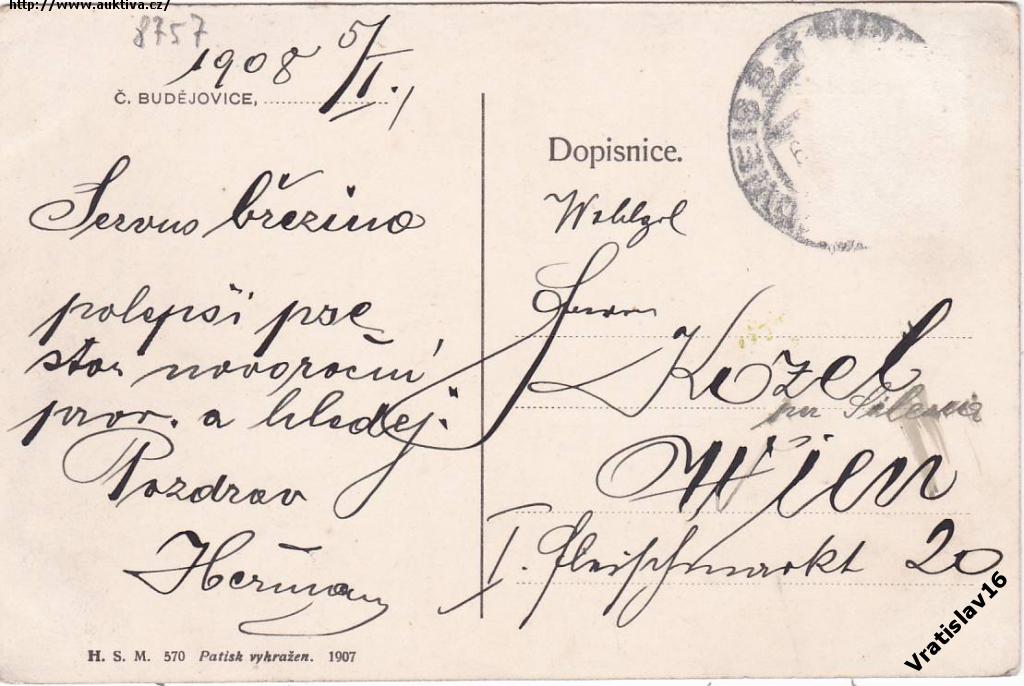 http://www.auktiva.cz/
8757
1908 5/I.
Č. BUDĚJOVICE,
Servus březino
polepši pře
stor novoroční
prov. a hledej.
Pozdrav
Heřman
H. S. M. 570 Patisk vyhražen. 1907
DWEIS B
Dopisnice.
Herrn
J. Kozel
per Silesia
Wien
I. Fleischmarkt 20
Vratislav16